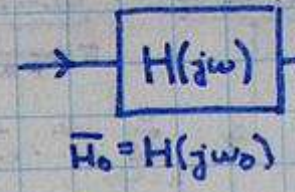 H(jω)
H̅₀ = H(jω₀)